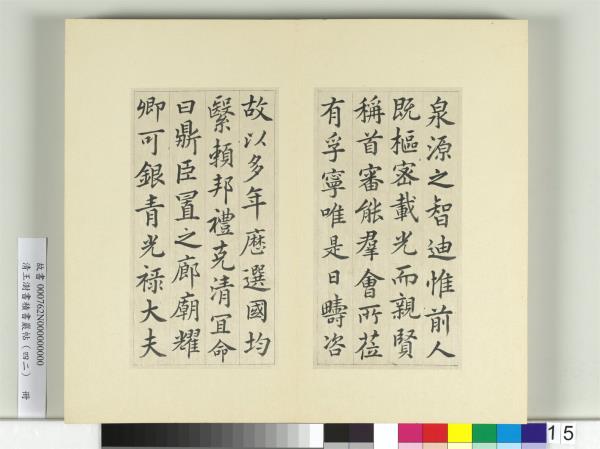 泉源之智迪惟前人
既樞密載光而親賢
稱首審能羣會所莅
有孚寧唯是日疇咨
故以多年歷選國均
繄賴邦禮克清冝命
曰鼎臣置之廊廟耀
卿可銀青光禄大夫
故書000762N000000000
清王澍書積書巖帖(四二) 冊
15